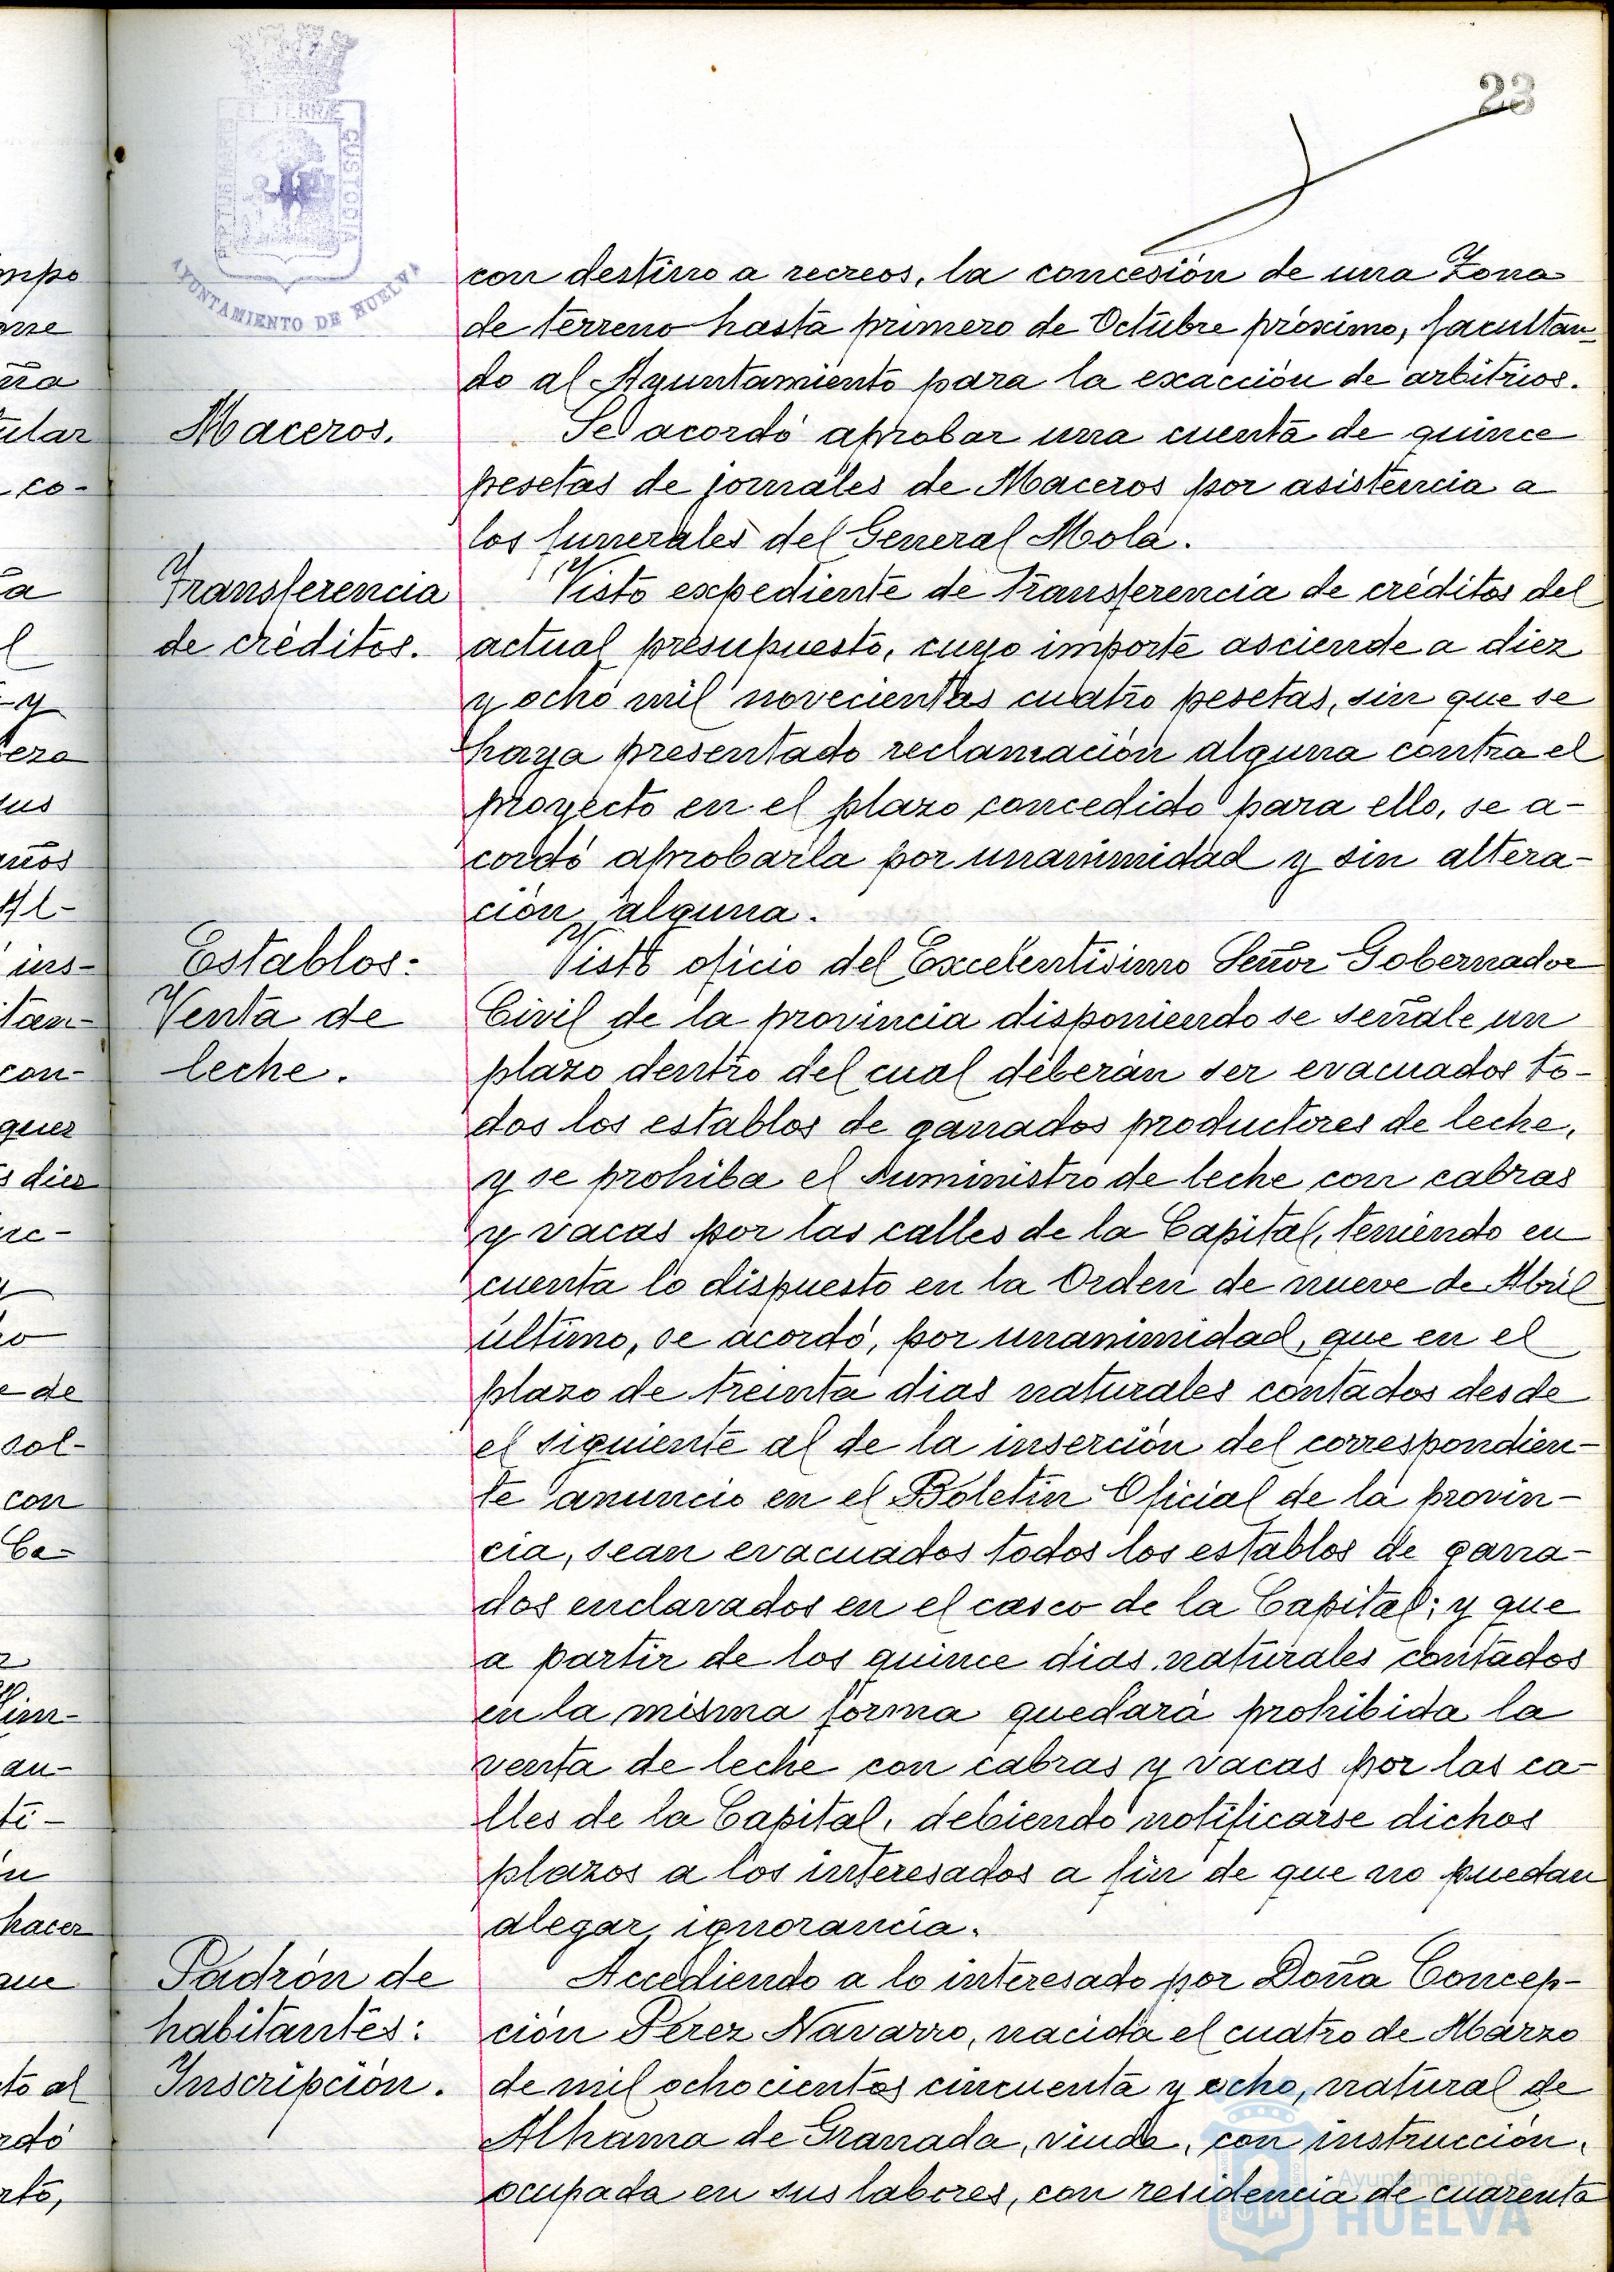 23
PORTUS
ET TERRÆ
CUSTODIA
AYUNTAMIENTO DE HUELVA
con destino a recreos, la concesión de una zona
de terreno hasta primero de Octubre próximo, facultan-
do al Ayuntamiento para la exacción de arbitrios.
Maceros.
Se acordó aprobar una cuenta de quince
pesetas de jornales de Maceros por asistencia a
los funerales del General Mola.
Transferencia
de créditos.
Visto expediente de transferencia de créditos del
actual presupuesto, cuyo importe asciende a diez
y ocho mil novecientas cuatro pesetas, sin que se
haya presentado reclamación alguna contra el
proyecto en el plazo concedido para ello, se a-
cordó aprobarla por unanimidad y sin altera-
ción alguna.
Establos:
Venta de
leche.
Visto oficio del Excelentísimo Señor Gobernador
Civil de la provincia disponiendo se señale un
plazo dentro del cual deberán ser evacuados to-
dos los establos de ganados productores de leche,
y se prohiba el suministro de leche con cabras
y vacas por las calles de la Capital, teniendo en
cuenta lo dispuesto en la Orden de nueve de Abril
último, se acordó, por unanimidad, que en el
plazo de treinta dias naturales contados desde
el siguiente al de la inserción del correspondien-
te anuncio en el Boletín Oficial de la provin-
cia, sean evacuados todos los establos de gana-
dos enclavados en el casco de la Capital; y que
a partir de los quince dias naturales contados
en la misma forma quedará prohibida la
venta de leche con cabras y vacas por las ca-
lles de la Capital, debiendo notificarse dichos
plazos a los interesados a fin de que no puedan
alegar ignorancia.
Padrón de
habitantes:
Inscripción.
Accediendo a lo interesado por Doña Concep-
ción Pérez Navarro, nacida el cuatro de Marzo
de mil ochocientos cincuenta y ocho, natural de
Alhama de Granada, viuda, con instrucción,
ocupada en sus labores, con residencia de cuarenta
Ayuntamiento de
HUELVA